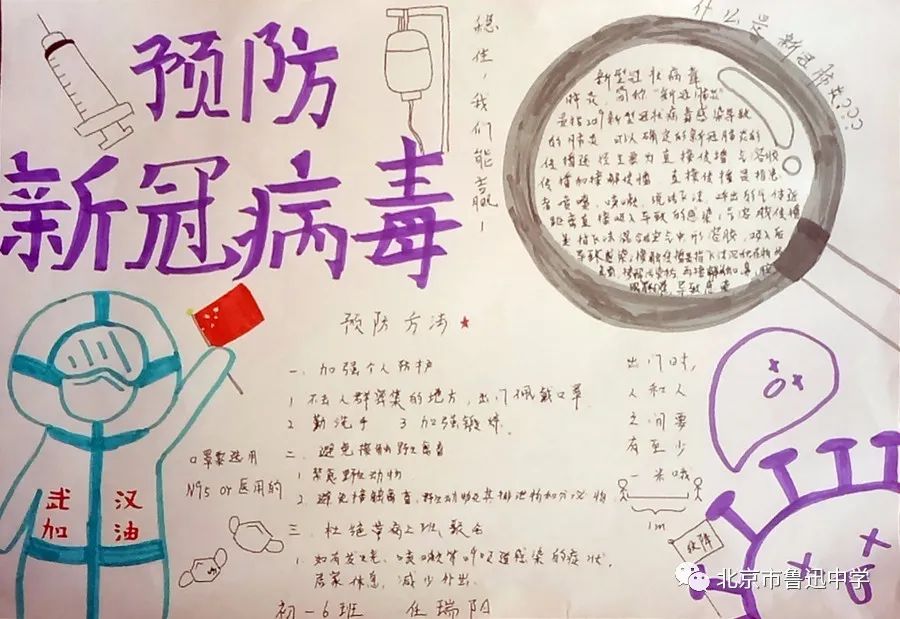 预防
新冠病毒
稳住，我们能赢！
什么是新冠肺炎???
新型冠状病毒
肺炎，简称“新冠肺炎”
是指2019新型冠状病毒感染导致
的肺炎 可以确定的新冠肺炎的
传播途径主要为直接传播 气溶胶
传播和接触传播 直接传播是指患
者喷嚏、咳嗽、说话飞沫 呼出的气体近
距离直接吸入导致的感染；气溶胶传播
是指飞沫混合在空气中，形 溶胶，吸入后
导致感染；接触传播是指飞沫沉积在物
接触污染 再接触 口、鼻、
导致感染
预防方法★
一、加强个人防护
1 不去人群密集的地方，出门佩戴口罩
2 勤洗手 3 加强锻炼.
二、避免接触野生禽畜
1 禁息野生动物
2. 避免接触禽畜、野生动物及其排泄物和分泌物
三、杜绝带病上班、聚会
1. 如有发烧、咳嗽等呼吸道感染的症状
居家休息，减少外出.
口罩要选用
N95 or 医用的
出门时，
人和人
之间要
有至少
一米哦
1m
武汉
加油
投降
初一6班 任瑞阳
北京市鲁迅中学